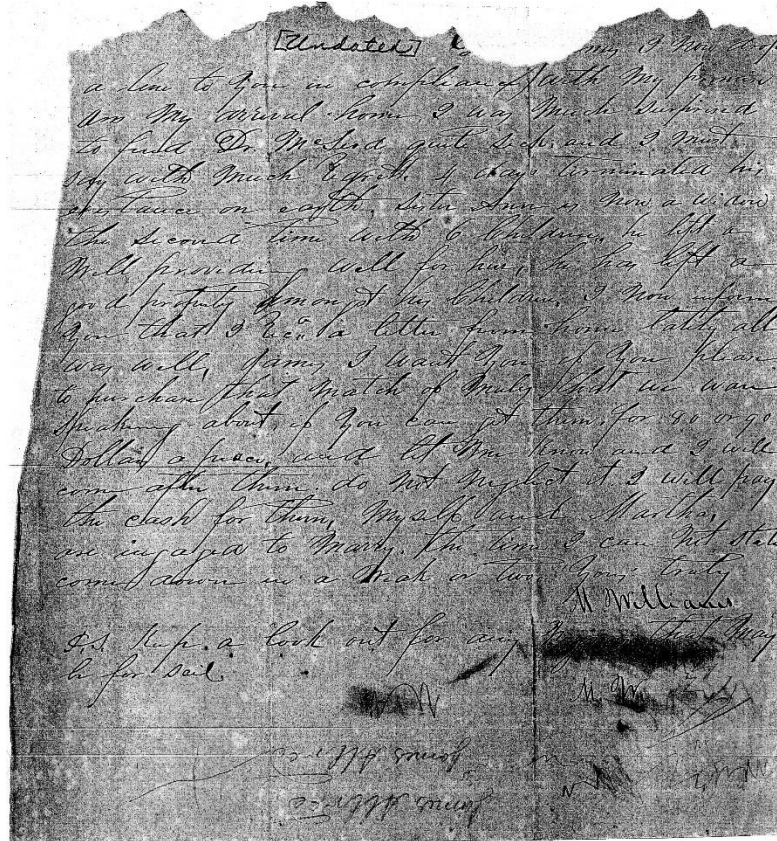 [Undated]
I now drop
a line to you in compliance with my promise
on My arrival home I was Much surprised
to find Dr. McLeod quite sick and I Must
say with Much regret 4 days terminated his
existance on earth, sister Ann is Now a widow
the second time with 6 Children, he left a
Will providing well for her, he has left a
good property Amongst his Children, I now inform
you that I Recd a letter from home lately all
was well, James I want You if You please
to purchase that Match of Mules that we ware
speaking about, if You can get them for 80 or 90
Dollars a piece, and let Me know and I will
come after them. do not Neglect it I will pay
the cash for them, Myself and Martha,
are ingaged to Marry. the time I can Not state
come down in a weak or two. Yours truly
M Williams
P.S. Keep a look out for any that May
be for sail.
M. W.
James
James